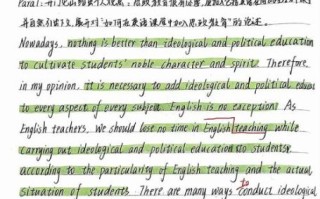 Para1: 开门见山
并自然引出下文,展开对“如何在英语课程中加入思政教育”的论述.
Nowadays, nothing is better than ideological and political education
to cultivate students' noble character and spirit. Therefore
in my opinion, it is necessary to add ideological and political educa
to every aspect of every subject. English is no exception. As
English teachers, we should lost no time in English teaching while
carrying out ideological and political education to students,
according to the particularity of English teaching and the actual
situation of students. There are many ways to conduct ideological